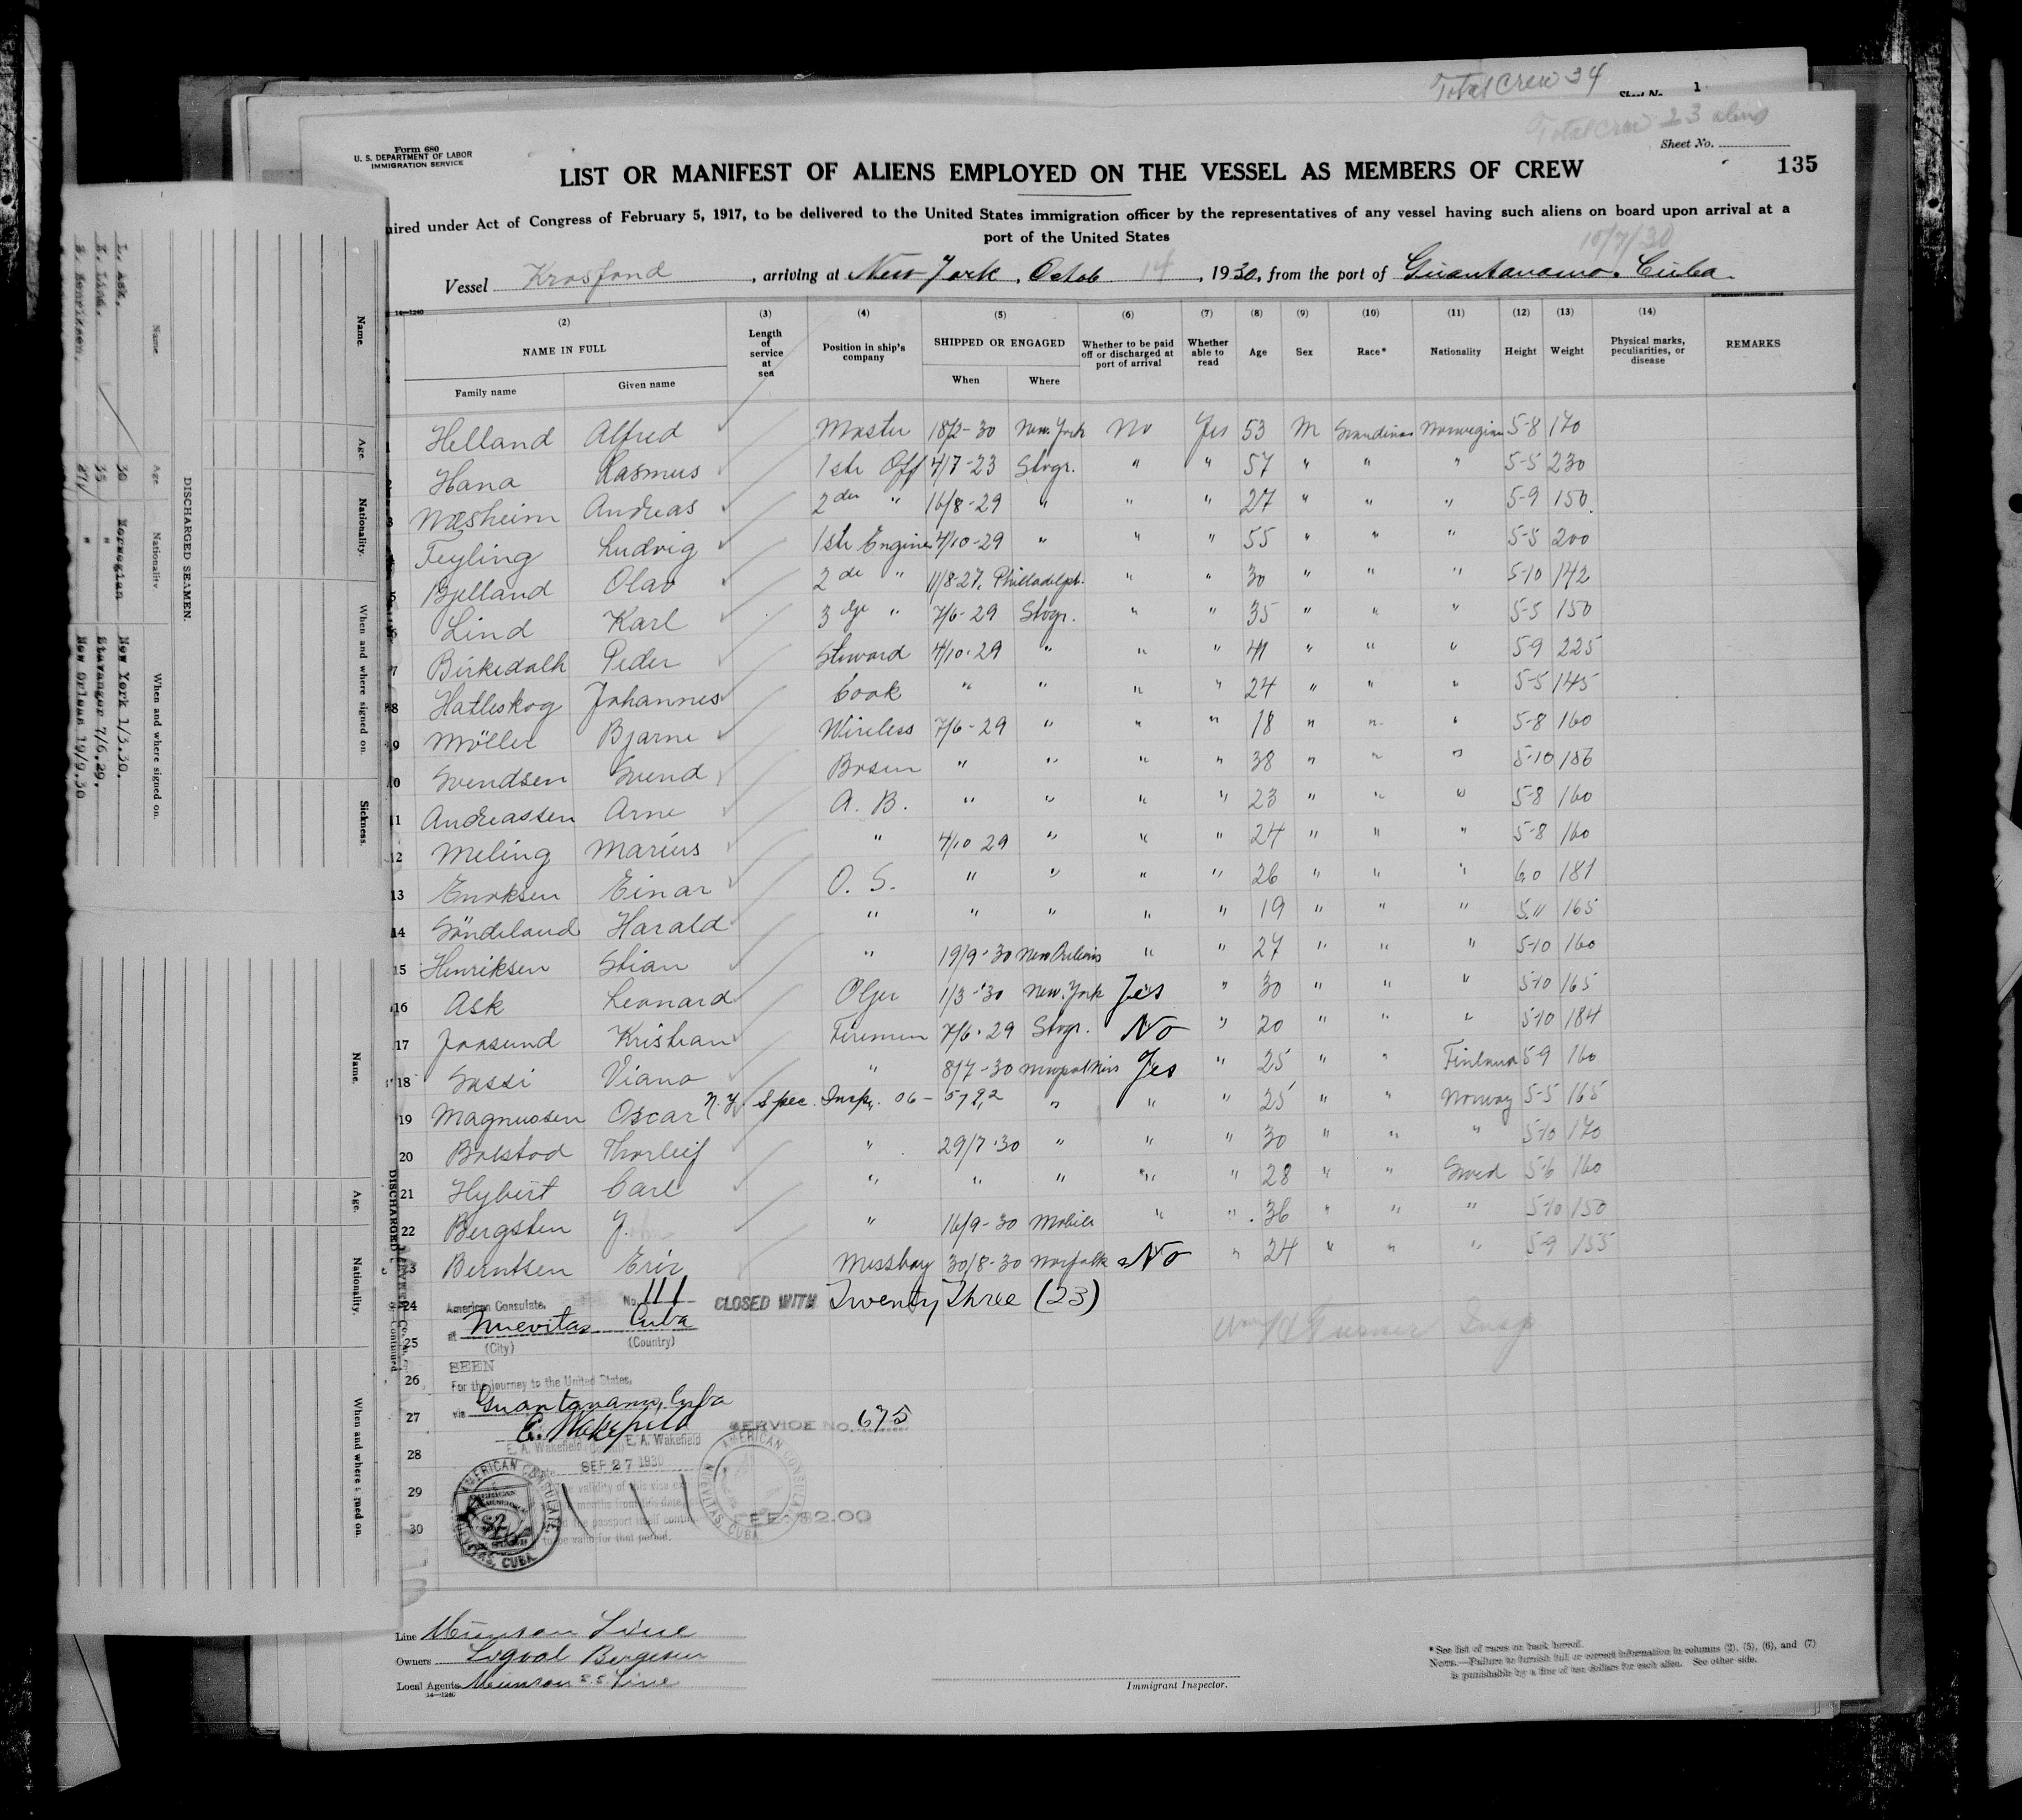 Total Crew 34
Sheet No. 1
Total crew 23 aliens
Sheet No.
Form 680
U. S. DEPARTMENT OF LABOR
IMMIGRATION SERVICE
LIST OR MANIFEST OF ALIENS EMPLOYED ON THE VESSEL AS MEMBERS OF CREW
135
uired under Act of Congress of February 5, 1917, to be delivered to the United States immigration officer by the representatives of any vessel having such aliens on board upon arrival at a
port of the United States
10/7/30
Vessel Krosfond, arriving at New York, Octob 14, 1930, from the port of Guantanamo. Cuba.
14—1240
(2) (3) (4) (5) (6) (7) (8) (9) (10) (11) (12) (13) (14)
NAME IN FULL Length of service at sea Position in ship's company SHIPPED OR ENGAGED Whether to be paid off or discharged at port of arrival Whether able to read Age Sex Race* Nationality Height Weight Physical marks, peculiarities, or disease REMARKS
Family name Given name When Where
1 Helland Alfred Master 18/2-30 New. York No Yes 53 M Scandinav Norwegian 5-8 170
Hana Rasmus 1ste Off 4/7-23 Stvgr. " " 57 " " " 5-5 230
3 Mæsheim Andreas 2den " 16/8-29 " " " 27 " " " 5-9 150.
4 Feyling Ludvig 1ste Engine 4/10-29 " " " 55 " " " 5-8 200
5 Bjelland Olav 2de " 11/8-27. Philladelph. " " 30 " " " 5-10 142
6 Lind Karl 3dje " 7/6-29 Stvgr. " " 35 " " " 5-5 150
7 Birkedalh Peder Steward 4/10-29 " " " 41 " " " 5-9 225
8 Hatleskog Johannes Cook " " " " 24 " " " 5-5 145
9 Möller Bjarne Wireless 7/6-29 " " " 18 " " " 5-8 160
10 Svendsen Svend Bosun " " " " 38 " " " 5-10 186
11 Andreassen Arne A. B. " " " " 23 " " " 5-8 160
12 Meling Marius " 4/10 29 " " " 24 " " " 5-8 160
13 Enoksen Einar O. S. " " " " 26 " " " 6.0 181
14 Söndeland Harald " " " " " 19 " " " 5.11 165
15 Henriksen Stian " 19/9-30 New Orleans " " 27 " " " 5-10 160
16 Ask Leonard Oljer 1/3-30 New. York Yes " 30 " " " 5-10 165
17 Joasund Kristian Firemen 7/6-29 Stvgr. No " 20 " " " 5-10 184
18 Sassi Viano " 8/7-30 Yes " 25 " " Finland 5-9 160
19 Magnussen Oscar N.Y. Spec. Insp. 06- 5792 " " " 25 " " Norway 5-5 165
20 Bolstad Thorleif " 29/7-30 " " " 30 " " " 5-10 170
21 Hybert Carl " " " " " 28 " " Swed 5-6 160
22 Bergsten J. " 16/9-30 Mobile " " 36 " " " 5-10 150
23 Berntsen Eric Messboy 30/8-30 Norfolk No " 24 " " " 5-9 155
24 American Consulate. No. 111 CLOSED WITH Twenty Three (23)
at Nuevitas Cuba
25 (City) (Country)
SEEN
26 For the journey to the United States,
via Guantanamo, Cuba
27 E. Wakefield SERVICE No. 675
E. A. Wakefield (Consul) E. A. Wakefield
28
Date SEP 27 1930
29 The validity of this visa
months from this date,
the passport itself
30 to be valid for that period.
AMERICAN CONSULATE NUEVITAS, CUBA.
AMERICAN CONSULATE NUEVITAS, CUBA
FEE: $2.00
Insp
Line Munson Line
Owners Sigval Bergesen
Local Agents Munson S.S. Line
14—1240
Immigrant Inspector.
*See list of races on back hereof.
NOTE.—Failure to furnish full or correct information in columns (2), (5), (6), and (7)
is punishable by a fine of ten dollars for each alien. See other side.
DISCHARGED SEAMEN.
Name. Age. Nationality. When and where signed on.
L. Ask. 30 Norwegian New York 1/3.30.
K. Lind. 35 " Stavanger 7/6.29.
S. Henriksen. 27 " New Orleans 19/9.30
Name. Age. Nationality. When and where signed on. Sickness.
DISCHARGED
Continued
Name. Age. Nationality. When and where signed on.